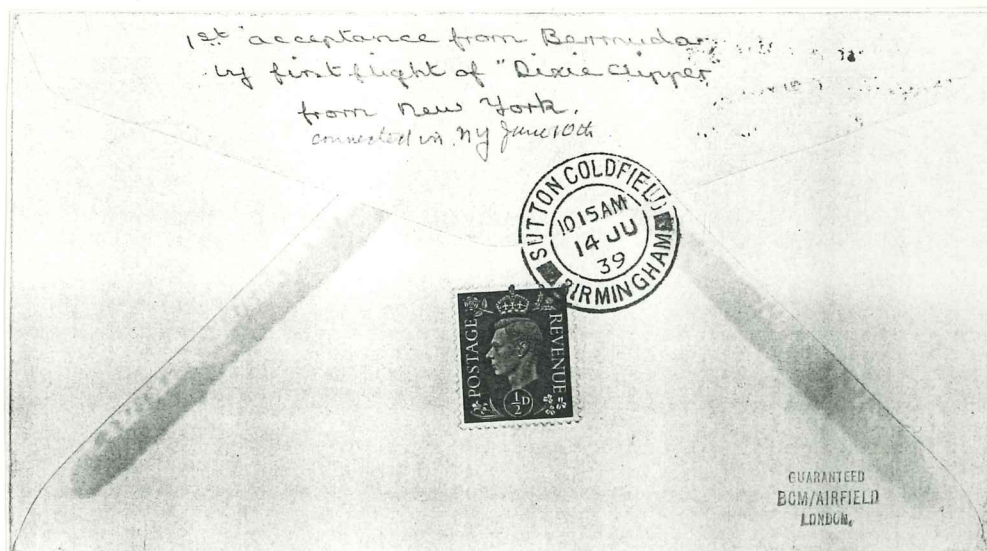 1st acceptance from Bermuda
by first flight of "Dixie Clipper
from New York.
connected in NY June 10th
SUTTON COLDFIELD
BIRMINGHAM
10 15 AM
14 JU
39
POSTAGE
REVENUE
½D
GUARANTEED
BCM/AIRFIELD
LONDON.